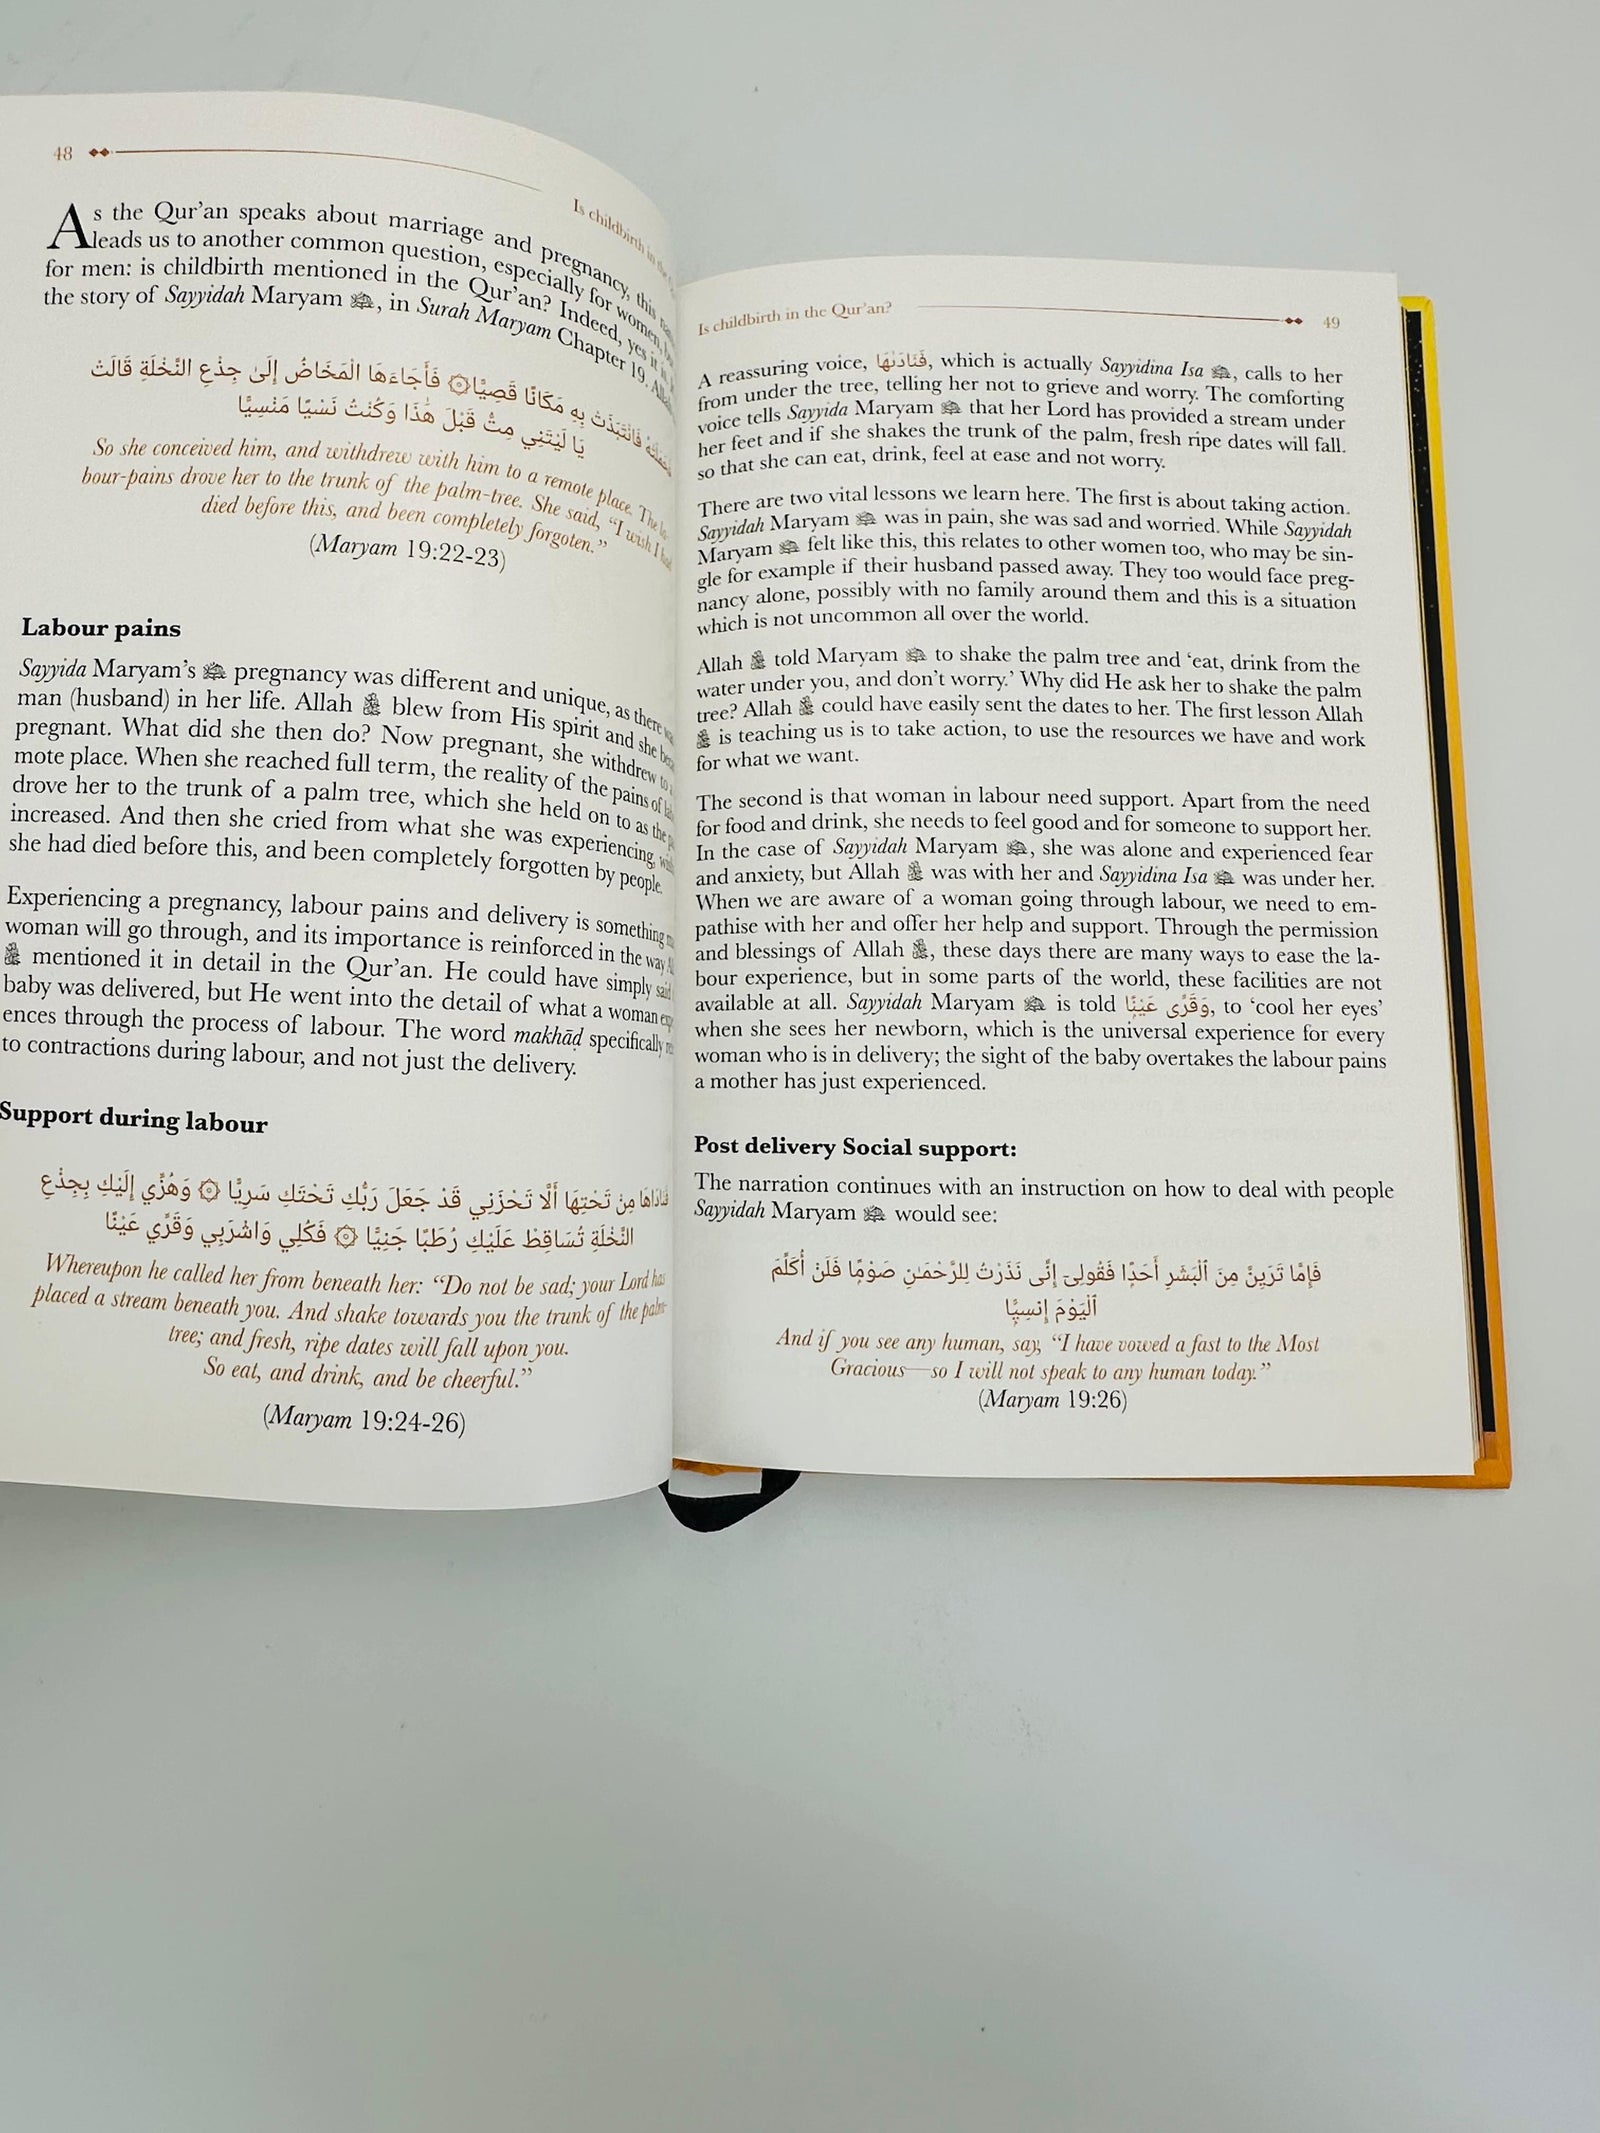 48
Is childbirth in the
As the Qur’an speaks about marriage and pregnancy, this
leads us to another common question, especially for women,
for men: is childbirth mentioned in the Qur’an? Indeed, yes it is
the story of Sayyidah Maryam, in Surah Maryam Chapter 19.
فَانْتَبَذَتْ بِهِ مَكَانًا قَصِيًّا ۞ فَأَجَاءَهَا الْمَخَاضُ إِلَىٰ جِذْعِ النَّخْلَةِ قَالَتْ
يَا لَيْتَنِي مِتُّ قَبْلَ هَٰذَا وَكُنْتُ نَسْيًا مَنْسِيًّا
So she conceived him, and withdrew with him to a remote place. The la-
bour-pains drove her to the trunk of the palm-tree. She said, “I wish I had
died before this, and been completely forgoten.”
(Maryam 19:22-23)
Labour pains
Sayyida Maryam’s pregnancy was different and unique, as there
man (husband) in her life. Allah blew from His spirit and she
pregnant. What did she then do? Now pregnant, she withdrew to
mote place. When she reached full term, the reality of the pains of
drove her to the trunk of a palm tree, which she held on to as the
increased. And then she cried from what she was experiencing,
she had died before this, and been completely forgotten by people.
Experiencing a pregnancy, labour pains and delivery is something
woman will go through, and its importance is reinforced in the way
ﷻ mentioned it in detail in the Qur’an. He could have simply said
baby was delivered, but He went into the detail of what a woman
ences through the process of labour. The word makhāḍ specifically
to contractions during labour, and not just the delivery.
Support during labour
فَنَادَاهَا مِنْ تَحْتِهَا أَلَّا تَحْزَنِي قَدْ جَعَلَ رَبُّكِ تَحْتَكِ سَرِيًّا ۞ وَهُزِّي إِلَيْكِ بِجِذْعِ
النَّخْلَةِ تُسَاقِطْ عَلَيْكِ رُطَبًا جَنِيًّا ۞ فَكُلِي وَاشْرَبِي وَقَرِّي عَيْنًا
Whereupon he called her from beneath her: “Do not be sad; your Lord has
placed a stream beneath you. And shake towards you the trunk of the palm-
tree; and fresh, ripe dates will fall upon you.
So eat, and drink, and be cheerful.”
(Maryam 19:24-26)
Is childbirth in the Qur’an?
49
A reassuring voice, فَنَادَىٰهَا, which is actually Sayyidina Isa, calls to her
from under the tree, telling her not to grieve and worry. The comforting
voice tells Sayyida Maryam that her Lord has provided a stream under
her feet and if she shakes the trunk of the palm, fresh ripe dates will fall.
so that she can eat, drink, feel at ease and not worry.
There are two vital lessons we learn here. The first is about taking action.
Sayyidah Maryam was in pain, she was sad and worried. While Sayyidah
Maryam felt like this, this relates to other women too, who may be sin-
gle for example if their husband passed away. They too would face preg-
nancy alone, possibly with no family around them and this is a situation
which is not uncommon all over the world.
Allah ﷻ told Maryam to shake the palm tree and ‘eat, drink from the
water under you, and don’t worry.’ Why did He ask her to shake the palm
tree? Allah ﷻ could have easily sent the dates to her. The first lesson Allah
ﷻ is teaching us is to take action, to use the resources we have and work
for what we want.
The second is that woman in labour need support. Apart from the need
for food and drink, she needs to feel good and for someone to support her.
In the case of Sayyidah Maryam, she was alone and experienced fear
and anxiety, but Allah ﷻ was with her and Sayyidina Isa was under her.
When we are aware of a woman going through labour, we need to em-
pathise with her and offer her help and support. Through the permission
and blessings of Allah ﷻ, these days there are many ways to ease the la-
bour experience, but in some parts of the world, these facilities are not
available at all. Sayyidah Maryam is told وَقَرِّى عَيْنًا, to ‘cool her eyes’
when she sees her newborn, which is the universal experience for every
woman who is in delivery; the sight of the baby overtakes the labour pains
a mother has just experienced.
Post delivery Social support:
The narration continues with an instruction on how to deal with people
Sayyidah Maryam would see:
فَإِمَّا تَرَيِنَّ مِنَ ٱلْبَشَرِ أَحَدًا فَقُولِىٓ إِنِّى نَذَرْتُ لِلرَّحْمَـٰنِ صَوْمًا فَلَنْ أُكَلِّمَ
ٱلْيَوْمَ إِنسِيًّا
And if you see any human, say, “I have vowed a fast to the Most
Gracious—so I will not speak to any human today.”
(Maryam 19:26)